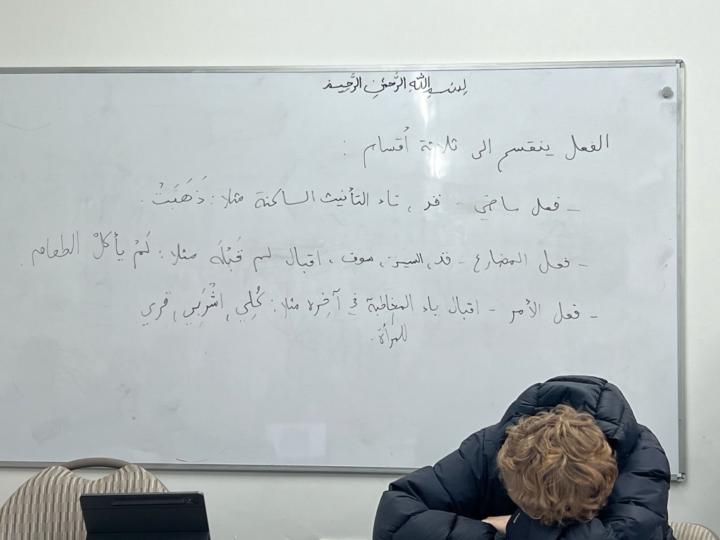 بِسْمِ اللهِ الرَّحْمٰنِ الرَّحِيمِ
الفعل ينقسم الى ثلاثة أقسام :
- فعل ماضي - قد ، تاء التأنيث الساكنة مثلا : ذَهَبَتْ .
- فعل المضارع - قد ، السين ، سوف ، اقبال لم قَبْلَه مثلا : لَمْ يأكلْ الطعام .
- فعل الأمر - اقبال ياء المخاطبة في آخِره مثلا : كُلِي ، اشْرَبِي ، قري
للمرأة .